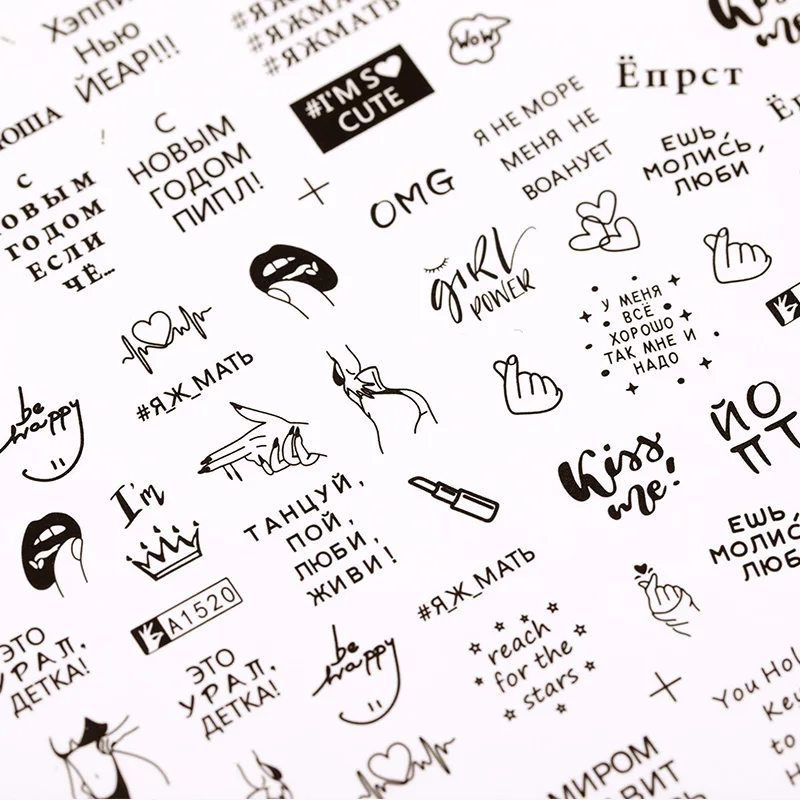 ХЭППИ
Нью
ЙЕАР!!!
#ЯЖМАТЬ
#ЯЖМАТЬ
#ЯЖМАТЬ
wow
Kiss
me!
#I'M SO
CUTE
Ёпрст
ЮША
С
НОВЫМ
ГОДОМ
ПИПЛ!
Я НЕ МОРЕ
МЕНЯ НЕ
ВОАНУЕТ
ЕШЬ,
МОЛИСЬ,
ЛЮБИ
С
НОВЫМ
ГОДОМ
ЕСЛИ
ЧЁ...
OMG
GIRL
POWER
У МЕНЯ
ВСЁ
ХОРОШО
ТАК МНЕ И
НАДО
#Я_Ж_МАТЬ
be
happy
I'm
ТАНЦУЙ,
ПОЙ,
ЛЮБИ,
ЖИВИ!
Kiss
me!
ЙО
ПТ
ЕШЬ,
МОЛИСЬ,
ЛЮБ
#Я_Ж_МАТЬ
A1520
ЭТО
УРАЛ,
ДЕТКА!
ЭТО
УРАЛ,
ДЕТКА!
be
happy
reach
for the
stars
You Hol
Key
to
МИРОМ